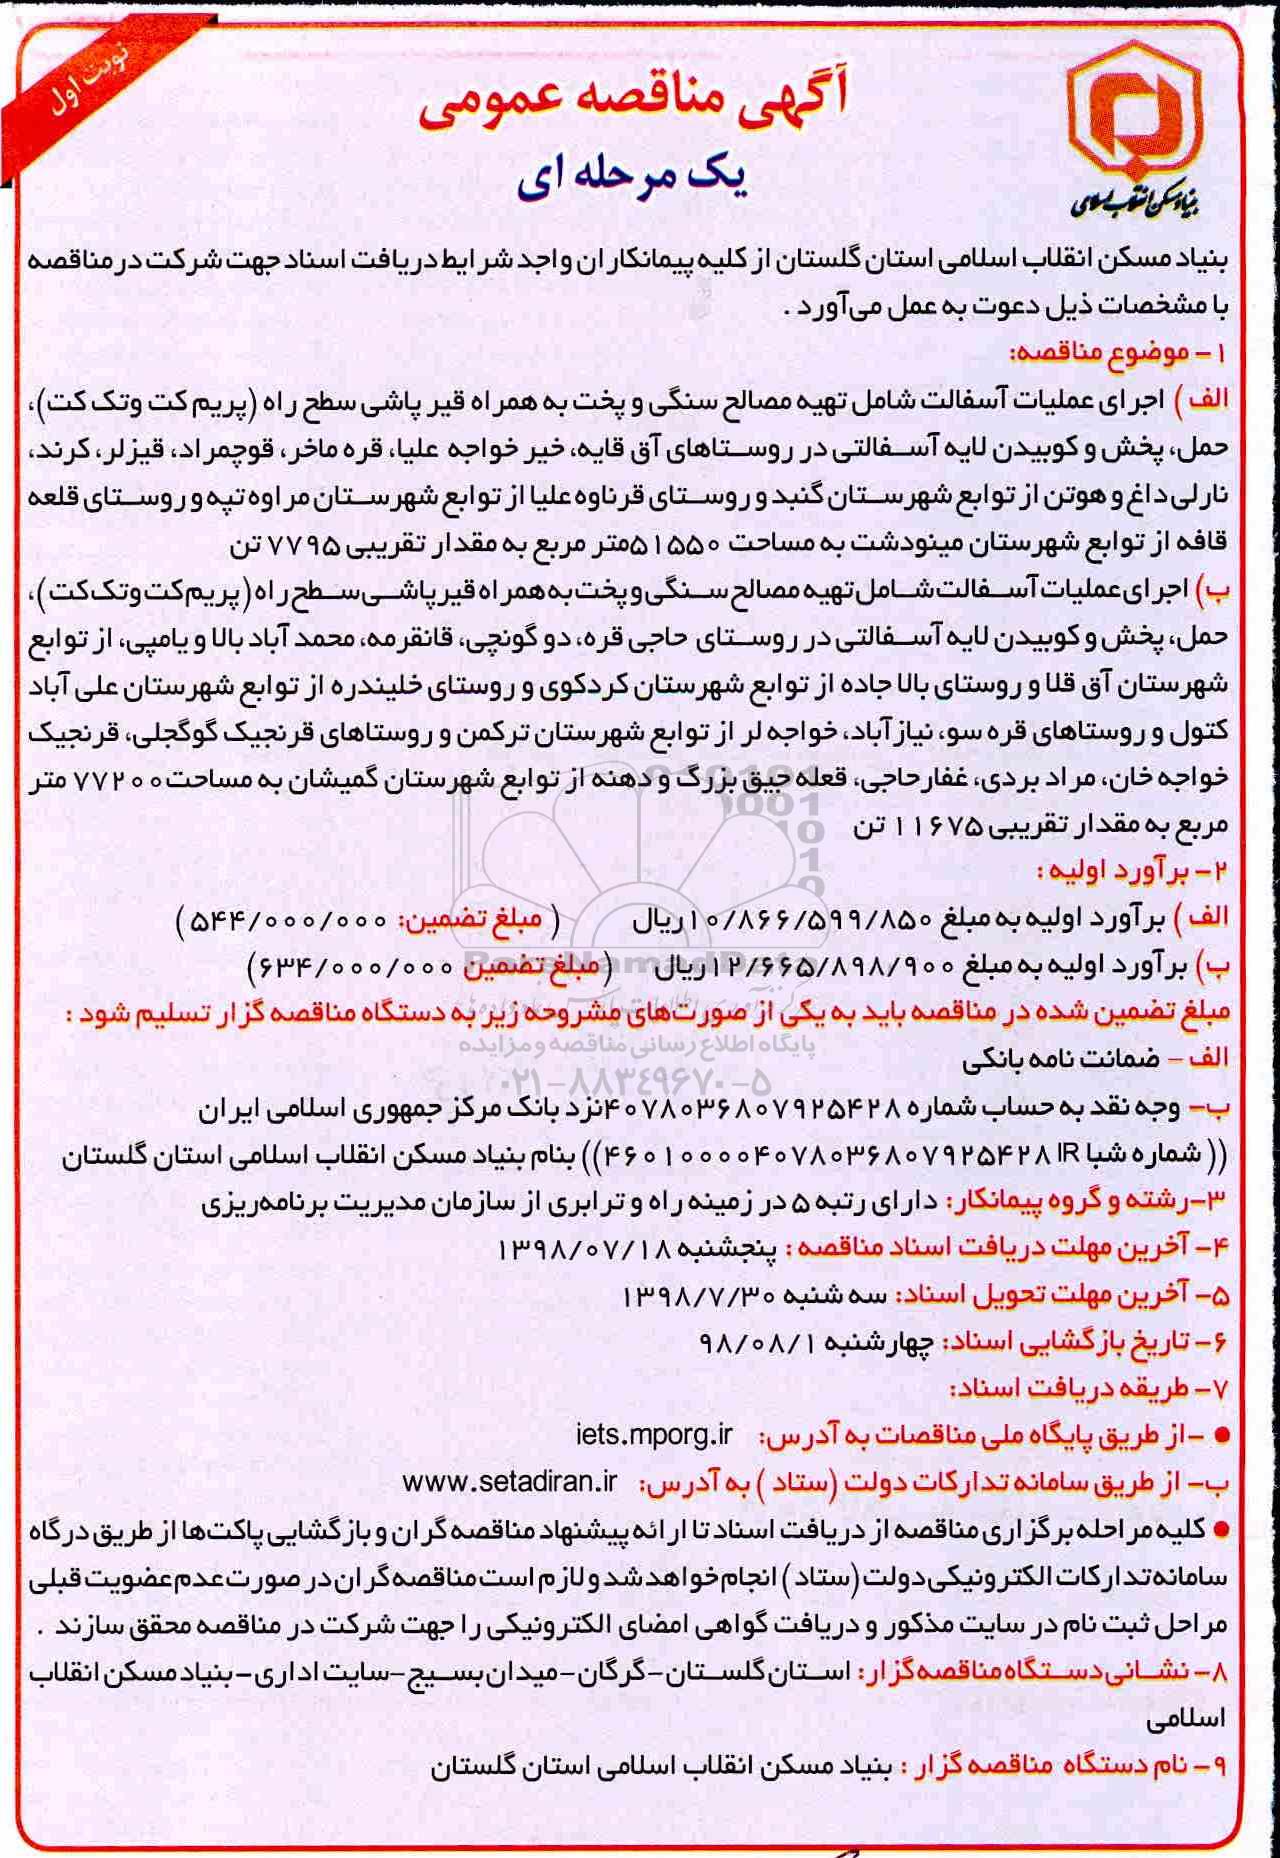 نوبت اول
آگهی مناقصه عمومی
یک مرحله ای
بنیاد مسکن انقلاب اسلامی
بنیاد مسکن انقلاب اسلامی استان گلستان از کلیه پیمانکاران واجد شرایط دریافت اسناد جهت شرکت در مناقصه
با مشخصات ذیل دعوت به عمل می‌آورد .
۱- موضوع مناقصه:
الف ) اجرای عملیات آسفالت شامل تهیه مصالح سنگی و پخت به همراه قیر پاشی سطح راه (پریم کت وتک کت)،
حمل، پخش و کوبیدن لایه آسفالتی در روستاهای آق قایه، خیر خواجه علیا، قره ماخر، قوچمراد، قیزلر، کرند،
نارلی داغ و هوتن از توابع شهرستان گنبد و روستای قرناوه علیا از توابع شهرستان مراوه تپه و روستای قلعه
قافه از توابع شهرستان مینودشت به مساحت ۵۱۵۵۰متر مربع به مقدار تقریبی ۷۷۹۵ تن
ب) اجرای عملیات آسفالت شامل تهیه مصالح سنگی و پخت به همراه قیرپاشی سطح راه (پریم کت وتک کت )،
حمل، پخش و کوبیدن لایه آسفالتی در روستای حاجی قره، دو گونچی، قانقرمه، محمد آباد بالا و یامپی، از توابع
شهرستان آق قلا و روستای بالا جاده از توابع شهرستان کردکوی و روستای خلیندره از توابع شهرستان علی آباد
کتول و روستاهای قره سو، نیازآباد، خواجه لر از توابع شهرستان ترکمن و روستاهای قرنجیک گوگجلی، قرنجیک
خواجه خان، مراد بردی، غفارحاجی، قعله جیق بزرگ و دهنه از توابع شهرستان گمیشان به مساحت ۷۷۲۰۰ متر
مربع به مقدار تقریبی ۱۱۶۷۵ تن
۲- برآورد اولیه :
الف ) برآورد اولیه به مبلغ ۱۰/۸۶۶/۵۹۹/۸۵۰ریال ( مبلغ تضمین: ۵۴۴/۰۰۰/۰۰۰ )
ب) برآورد اولیه به مبلغ ۱۲/۶۶۵/۸۹۸/۹۰۰ریال (مبلغ تضمین ۶۳۴/۰۰۰/۰۰۰)
مبلغ تضمین شده در مناقصه باید به یکی از صورت‌های مشروحه زیر به دستگاه مناقصه گزار تسلیم شود :
پایگاه اطلاع رسانی مناقصه و مزایده
الف - ضمانت نامه بانکی
۰۲۱-۸۸۳۴۹۶۷۰-۵
ب- وجه نقد به حساب شماره ۴۰۷۸۰۳۶۸۰۷۹۲۵۴۲۸نزد بانک مرکز جمهوری اسلامی ایران
(( شماره شبا IR ۴۶۰۱۰۰۰۰۴۰۷۸۰۳۶۸۰۷۹۲۵۴۲۸)) بنام بنیاد مسکن انقلاب اسلامی استان گلستان
۳-رشته و گروه پیمانکار: دارای رتبه ۵ در زمینه راه و ترابری از سازمان مدیریت برنامه‌ریزی
۴- آخرین مهلت دریافت اسناد مناقصه : پنجشنبه ۱۳۹۸/۰۷/۱۸
۵- آخرین مهلت تحویل اسناد: سه شنبه ۱۳۹۸/۷/۳۰
۶- تاریخ بازگشایی اسناد: چهارشنبه ۹۸/۰۸/۱
۷- طریقه دریافت اسناد:
● -از طریق پایگاه ملی مناقصات به آدرس: iets.mporg.ir
ب- از طریق سامانه تدارکات دولت (ستاد ) به آدرس: www.setadiran.ir
● کلیه مراحله برگزاری مناقصه از دریافت اسناد تا ارائه پیشنهاد مناقصه گران و بازگشایی پاکت‌ها از طریق درگاه
سامانه تدارکات الکترونیکی دولت (ستاد ) انجام خواهد شد و لازم است مناقصه گران در صورت عدم عضویت قبلی
مراحل ثبت نام در سایت مذکور و دریافت گواهی امضای الکترونیکی را جهت شرکت در مناقصه محقق سازند .
۸- نشانی دستگاه مناقصه گزار: استان گلستان-گرگان-میدان بسیج-سایت اداری-بنیاد مسکن انقلاب
اسلامی
۹- نام دستگاه مناقصه گزار : بنیاد مسکن انقلاب اسلامی استان گلستان